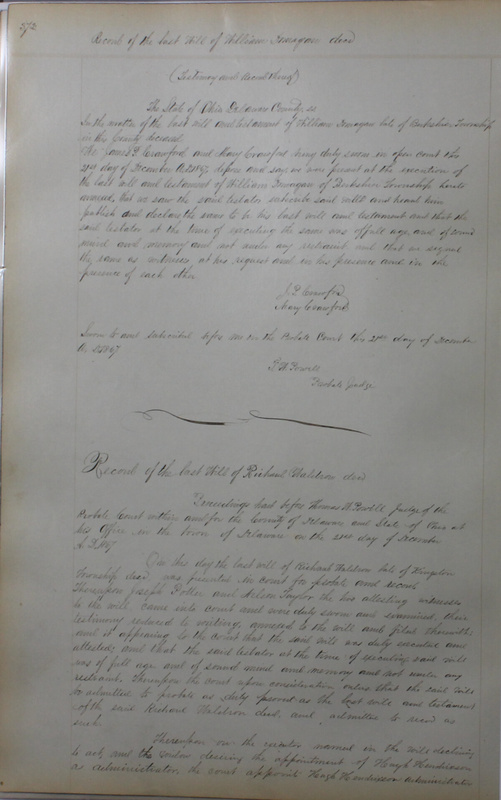 572
Record of the last Will of William Finnegan decd
(Testimony and recordthereof)
The State of Ohio Delaware County, ss
In the matter of the last will and testament of William Finnegan late of Berkshire Township
in this County deceased.
We James P. Crawford and Mary Crawford being duly sworn in open court this
21st day of December A.D. 1867, depose and say, we were present at the execution of
the last will and testament of William Finnegan of Berkshire Township hereto
annexed, that we saw the said testator subscribe said will and heard him
publish and declare the same to be his last will and testament and that the
said testator at the time of executing the same was of full age and of sound
mind and memory and not under any restraint and that we signed
the same as witnesses at his request and in his presence and in the
presence of each other.
J. P. Crawford
Mary Crawford
Sworn to and subscribed before me in the Probate Court this 21st day of December
A.D. 1867
T. W. Powell
Probate Judge
Record of the last Will of Richard Waldron decd
Proceedings had before Thomas W. Powell Judge of the
Probate Court within and for the County of Delaware and State of Ohio at
his Office in the town of Delaware on the 21st day of December
A.D. 1867
On this day the last will of Richard Waldron late of Kingston
Township decd was presented in court for probate and record
Thereupon Joseph Potter and Nelson Taylor the two attesting witnesses
to the will came into court and were duly sworn and examined, their
testimony reduced to writing, annexed to the will and filed therewith
and it appearing to the court that the said will was duly executed and
attested; and that the said testator at the time of executing said will
was of full age and of sound mind and memory and not under any
restraint. Thereupon the court upon consideration orders that the said will
be admitted to probate as duly proved as the last will and testament
of the said Richard Waldron decd. and admitted to record as
such.
Thereupon on the executor named in the will declining
to act, and the widow desiring the appointment of Hugh Henderson
as administrator, the court appoints Hugh Henderson Administrator